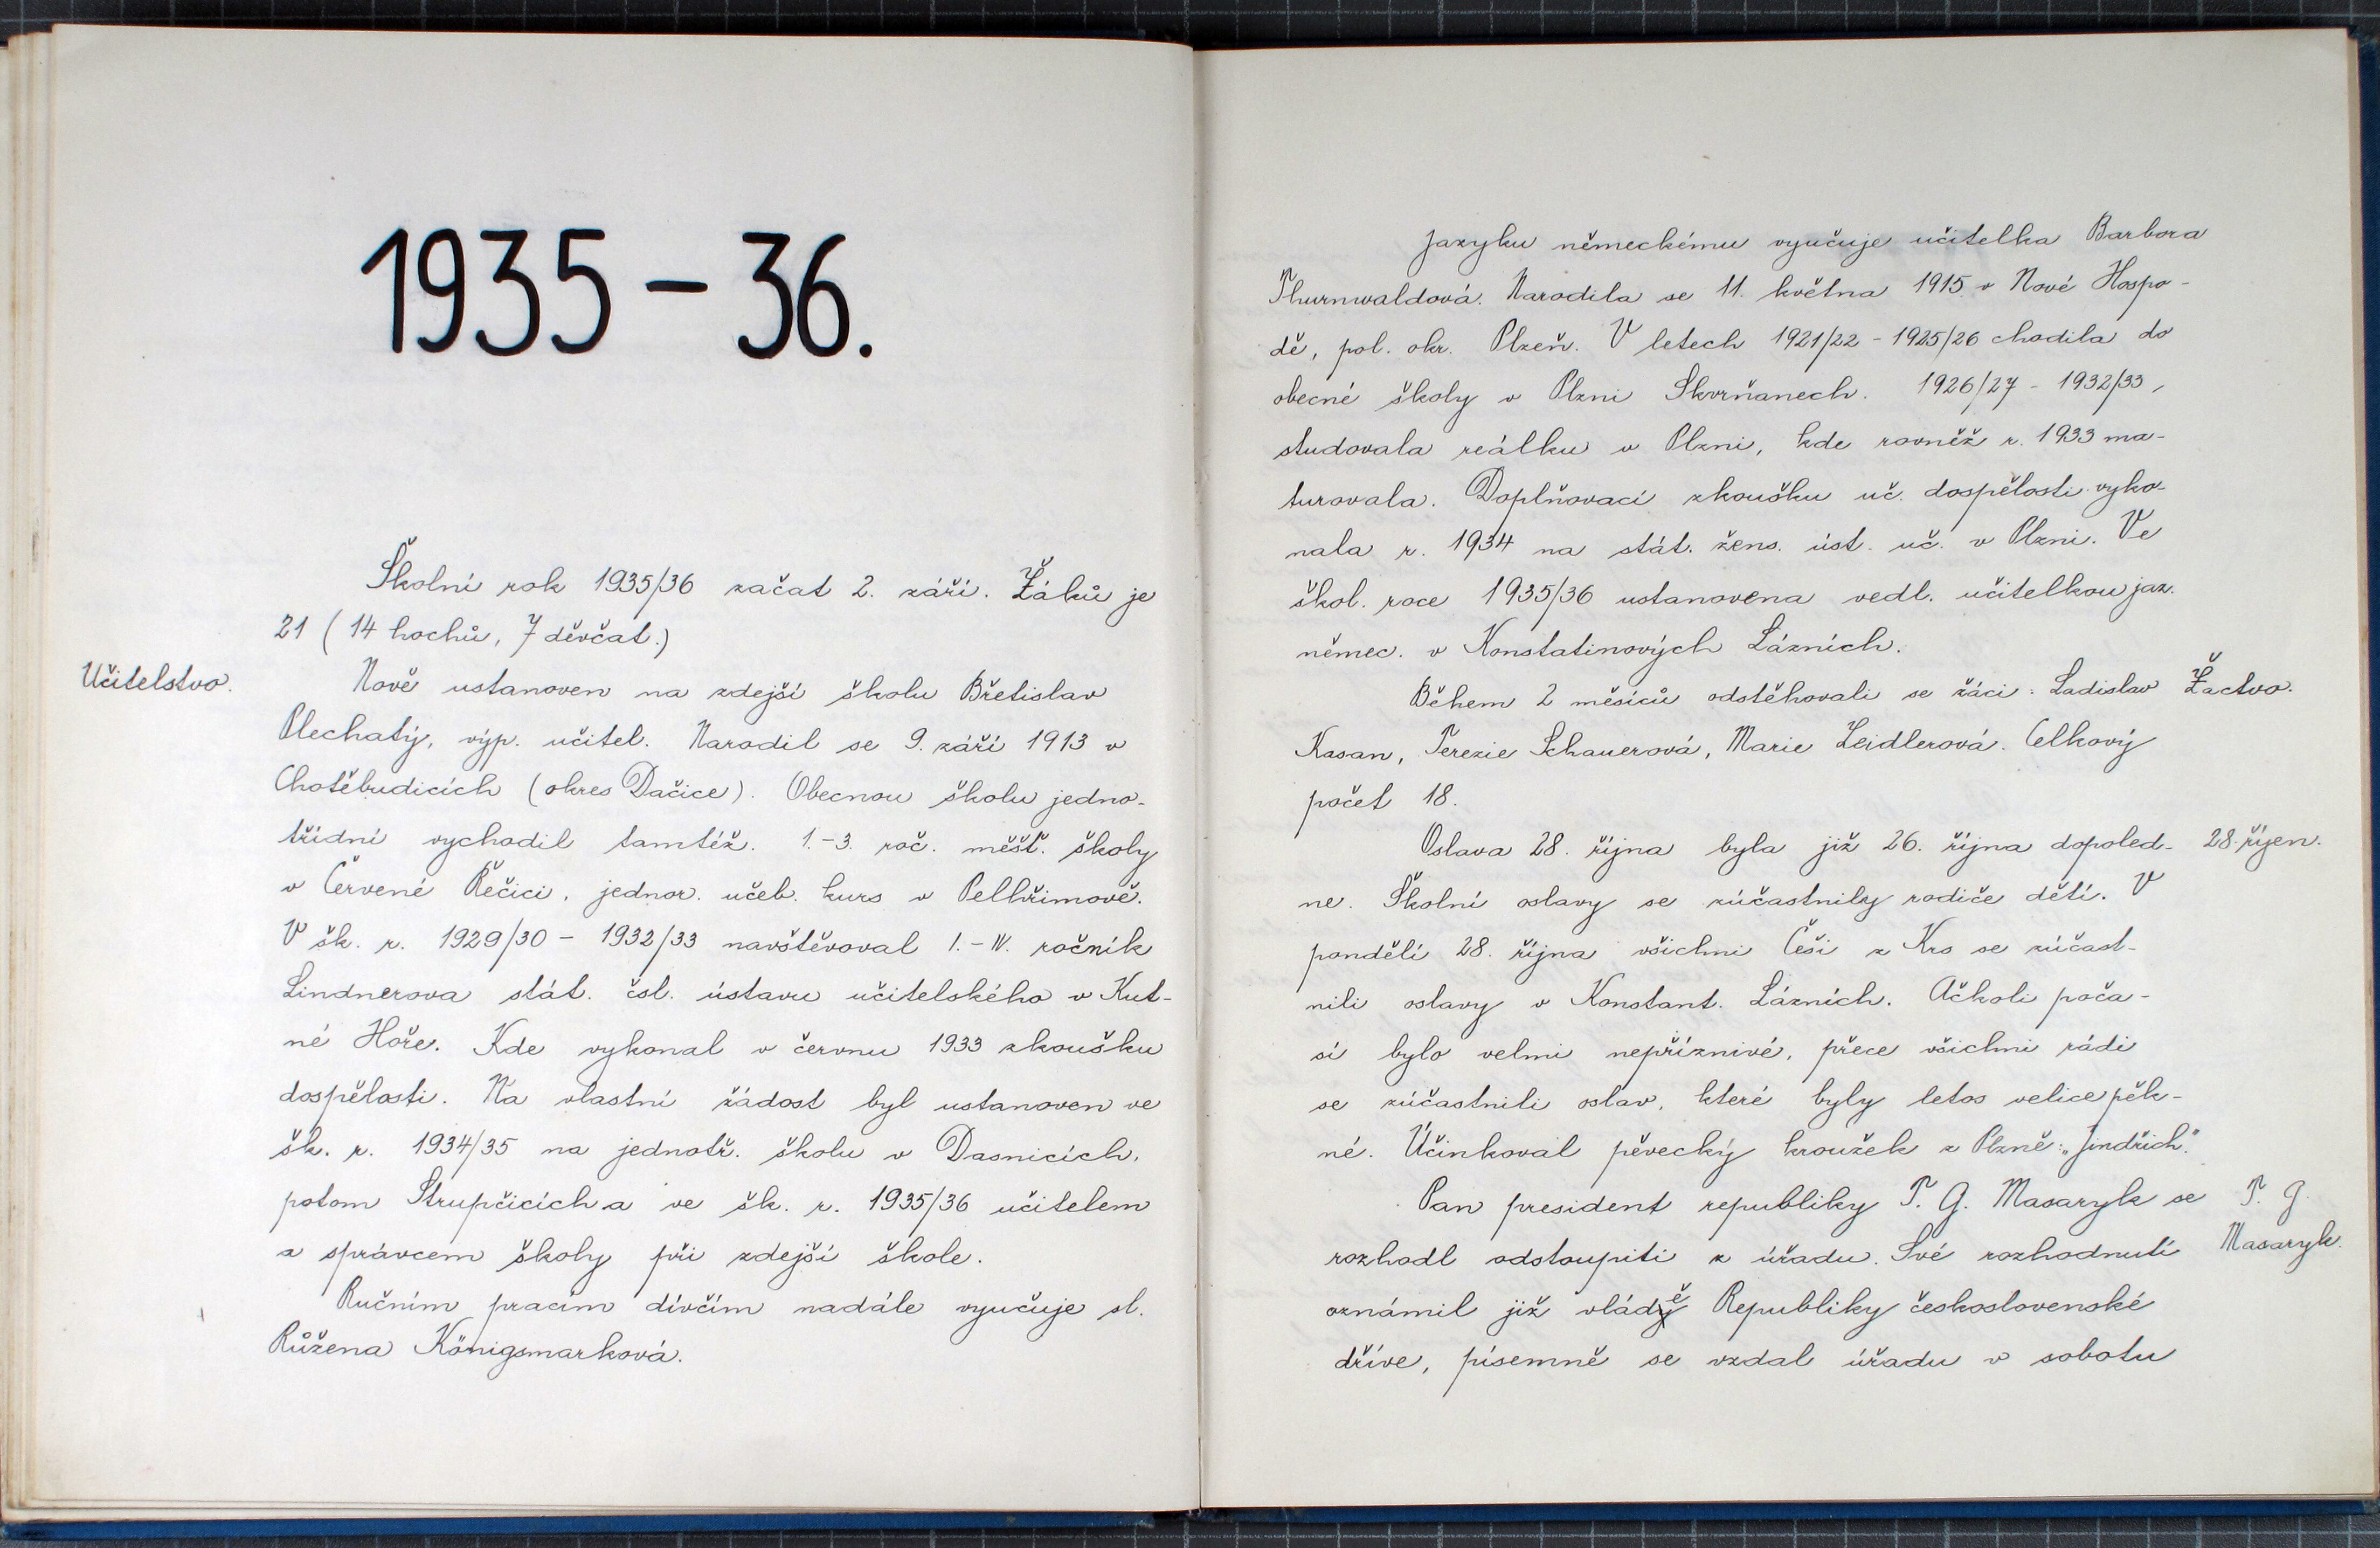 1935 - 36.
Školní rok 1935/36 začat 2. září. Žáků je
21 (14 hochů, 7 děvčat.)
Učitelstvo.
Nově ustanoven na zdejší školu Břetislav
Plechatý, výp. učitel. Narodil se 9. září 1913 v
Chotěbudicích (okres Dačice). Obecnou školu jedno-
třídní vychodil tamtéž. 1.-3. roč. měšť. školy
v Červené Řečici, jednor. učeb. kurs v Pelhřimově.
V šk. r. 1929/30 - 1932/33 navštěvoval I.-IV. ročník
Lindnerova stát. čsl. ústavu učitelského v Kut-
né Hoře. Kde vykonal v červnu 1933 zkoušku
dospělosti. Na vlastní žádost byl ustanoven ve
šk. r. 1934/35 na jednotř. školu v Dasnicích,
potom Strupčicích a ve šk. r. 1935/36 učitelem
a správcem školy při zdejší škole.
Ručním pracím dívčím nadále vyučuje sl.
Růžena Königsmarková.
Jazyku německému vyučuje učitelka Barbora
Thurnwaldová. Narodila se 11. května 1915 v Nové Hospo-
dě, pol. okr. Plzeň. V letech 1921/22 - 1925/26 chodila do
obecné školy v Plzni Skvrňanech. 1926/27 - 1932/33,
studovala reálku v Plzni, kde rovněž r. 1933 ma-
turovala. Doplňovací zkoušku uč. dospělosti vyko-
nala r. 1934 na stát. žens. úst. uč. v Plzni. Ve
škol. roce 1935/36 ustanovena vedl. učitelkou jaz.
němec. v Konstatinových Lázních.
Během 2 měsíců odstěhovali se žáci: Ladislav
Žactvo.
Kasan, Terezie Schauerová, Marie Zeidlerová. Celkový
počet 18.
Oslava 28. října byla již 26. října dopoled-
28. říjen.
ne. Školní oslavy se zúčastnily rodiče dětí. V
pondělí 28. října všichni Češi z Krs se zúčast-
nili oslavy v Konstant. Lázních. Ačkoli poča-
sí bylo velmi nepříznivé, přece všichni rádi
se zúčastnili oslav, které byly letos velice pěk-
né. Účinkoval pěvecký kroužek z Plzně: „Jindřich".
Pan president republiky T. G. Masaryk se
T. G.
Masaryk.
rozhodl odstoupiti z úřadu. Své rozhodnutí
oznámil již vládě Republiky československé
dříve, písemně se vzdal úřadu v sobotu